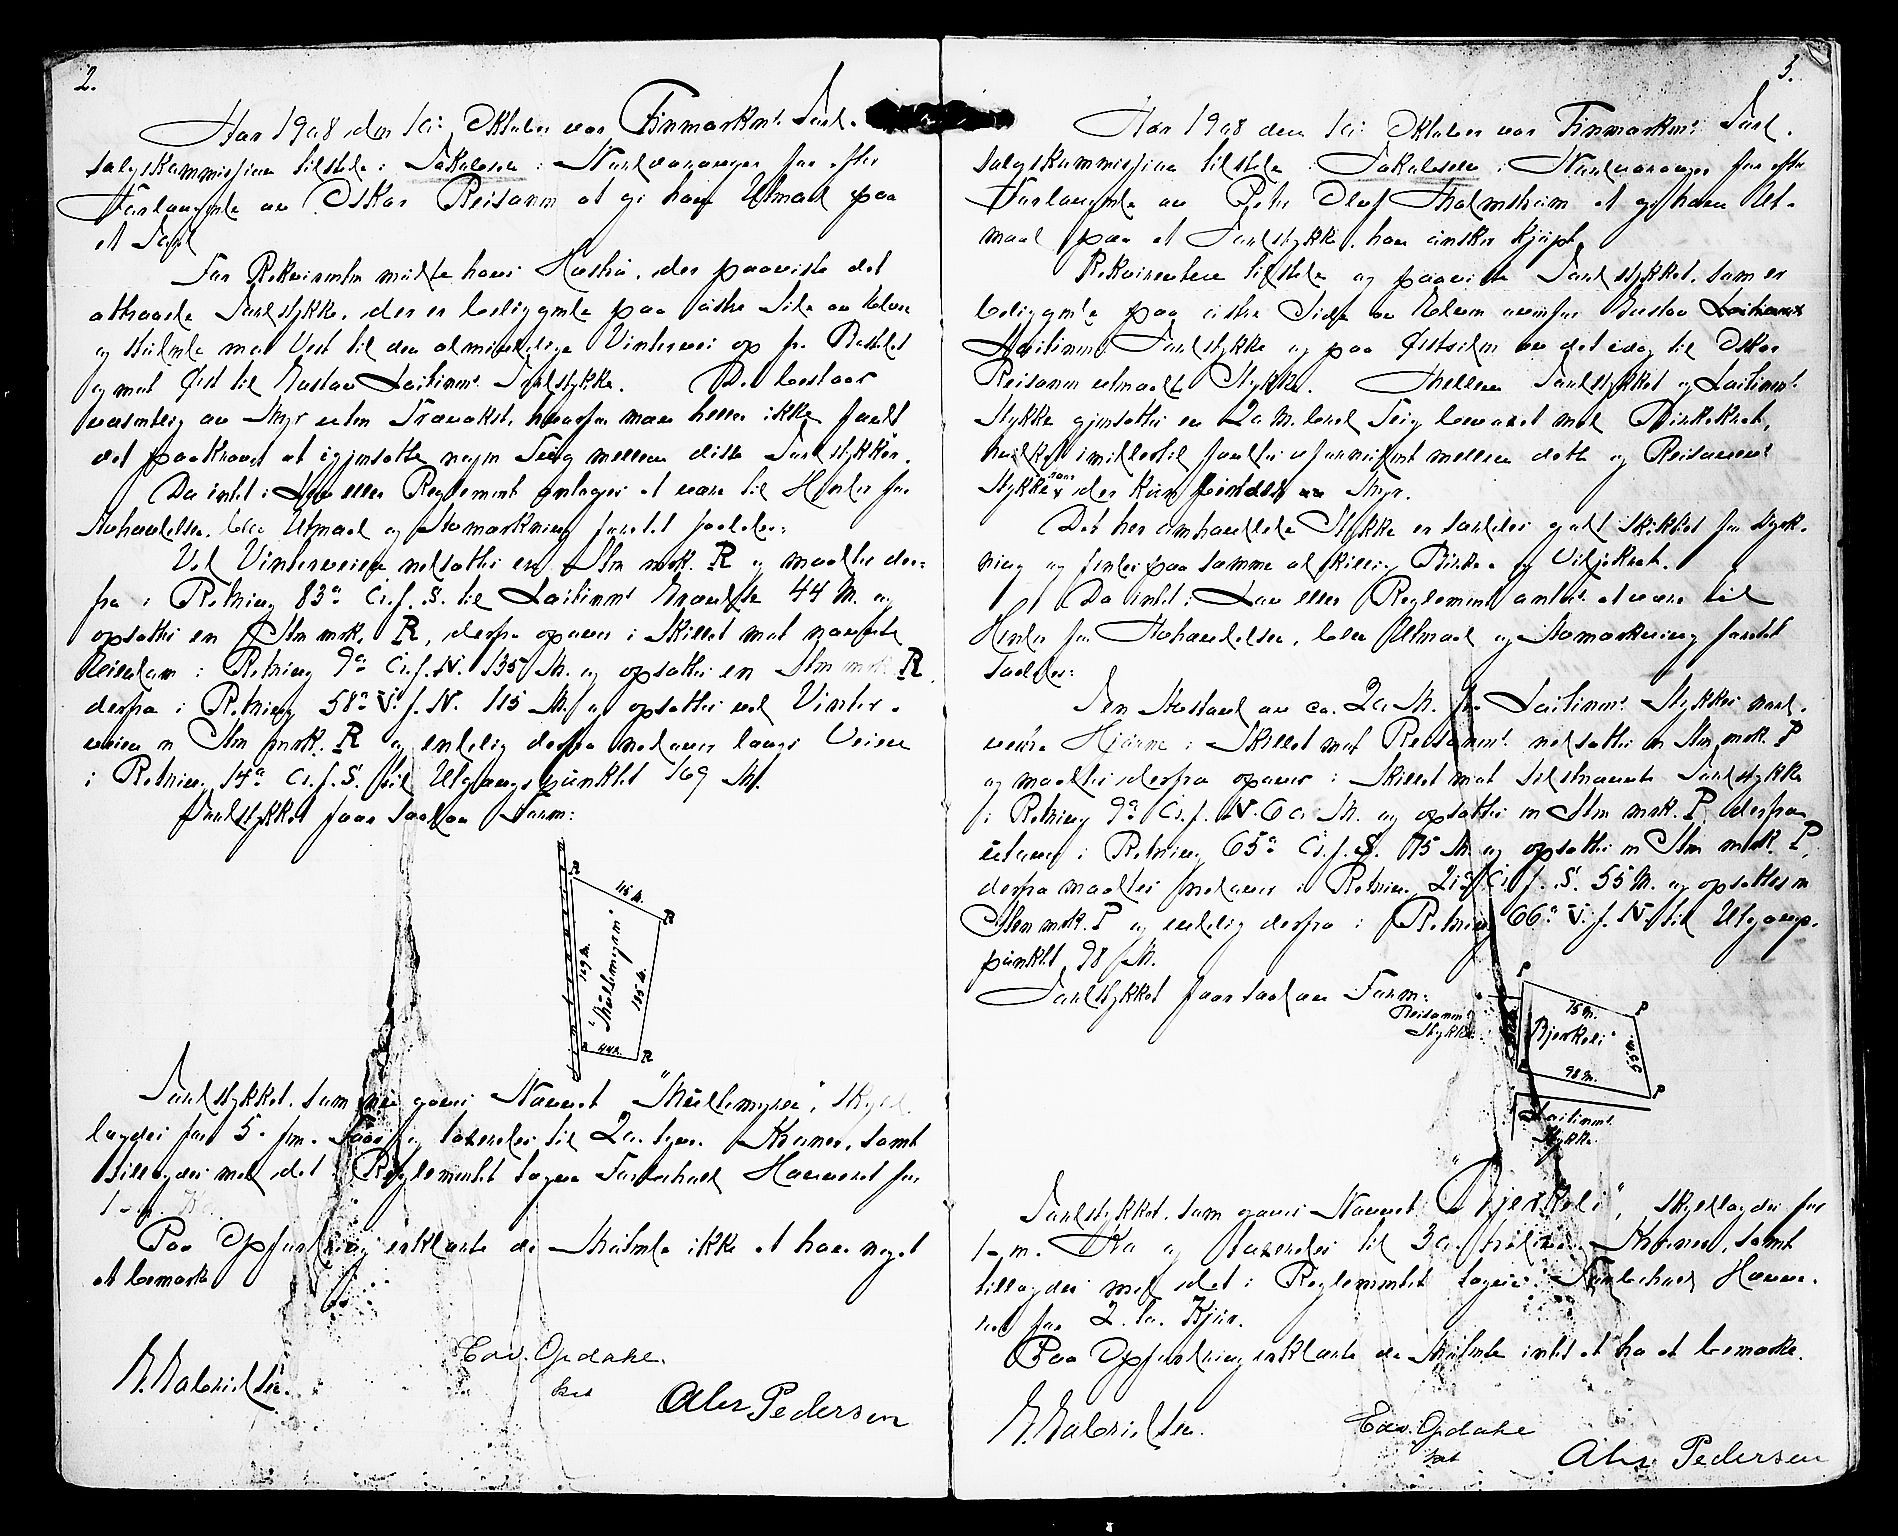 2.
Aar 1908 den 10 Oktober var Finmarkens Jord-
salgskommission tilstede i Jakobselv i Nordvaranger for efter
Forlangende av Oskar Reisænen at gi ham Utmaal paa
et Jord
For Rekvirenten mødte hans Hustru, der paaviste det
attraaede Jordstykke, der er beliggende paa østre Side av Elven
og støtende mot Vest til den almindelige Vintervei op fra Bostedet
og mot Øst til Gustav Laitinens Jordstykke. Det bestaar
væsentlig av Myr uten Trævekst, hvorfor man heller ikke fandt
det paakrævet at igjensætte nogen Teig mellem disse Jordstykker.
Da intet i Lov eller Reglement antages at være til Hinder for
Avhændelse, blev Utmaal og Avmerkning foretat saaledes:
Ved Vinterveien nedsattes en Sten mrk. R og maaltes der-
fra i Retning 83° Ø. f. S. til Laitinens Grændse 44 M. og
opsattes en Sten mrk. R, derfra opover i Skillet mot nævnte
Eiendom i Retning 9° Ø. f. N. 135 M. og opsattes en Sten mrk. R
derfra i Retning 58° V. f. N. 115 M. og opsattes ved Vinter-
veien en Sten mrk. R og endelig derfra nedover langs Veien
i Retning 14° Ø. f. S. til Utgangspunktet 169 M.
Jordstykket faar saadan Form:
R
115 M.
R
169 M.
"Multemyren"
135 M.
R
44 M.
R
Jordstykket, som gaves Navnet "Multemyren", skyld
lagdes for 5 - fem - Øre og taxertes til 20 - tyve - Kroner, samt
tillagdes med det i Reglementet tagne Forbehold Havneret for
1 - en Ko.
Paa Opfordring erklærte de Mødende ikke at have noget
at bemærke
G. Gabrielsen.
Edv. Opdahl.
Alex Pedersen
3.
Aar 1908 den 10 Oktober var Finmarkens Jord-
salgskommission tilstede i Jakobselv i Nordvaranger for efter
Forlangende av Peter Oluf Holmstrøm at gi ham Ut-
maal paa et Jordstykke, han ønsker kjøpt.
Rekvirenten tilstede og paaviste Jordstykket, som er
beliggende paa østre Side av Elven ovenfor Gustav Laitinens
Laitinens Jordstykke og paa Østsiden av det idag til Oskar
Reisænen utmaalte Stykke. Mellem Jordstykket og Laitinens
Stykke gjensattes en 20 M. bred Teig bevokset med Birkekrat,
hvilket imidlertid fandtes ufornødent mellem dette og Reisænens
Stykke, da der kun findes Myr.
Det her omhandlede Stykke er særdeles godt skikket for Dyrk-
ning og findes paa samme adskillig Birke- og Vidjekrat.
Da intet i Lov eller Reglement antas at være til
Hinder for Avhændelse, blev Utmaal og Avmerkning foretat
saaledes:
I en Avstand av ca. 20 M. fra Laitinens Stykkes nord-
vestre Hjørne i Skillet mot Reisænens nedsattes en Sten mrk. P
og maaltes derfra opover i Skillet mot sidstnævnte Jordstykke
i Retning 9° Ø. f. N. 60 M. og opsattes en Sten mrk. P, derfra
utover i Retning 65° Ø. f. S. 75 M. og opsattes en Sten mrk. P,
derfra maaltes nedover i Retning Ø. f. S. 55 M. og opsattes en
Sten mrk. P og endelig derfra i Retning 66° V. f. N. til Utgangs-
punktet 98 M.
Jordstykket faar saadan Form:
Reisænens
Stykke
P
75 M.
P
"Bjerkeli"
98 M.
P
Laitinens
Stykke
Jordstykket, som gaves Navnet "Bjerkeli", skyldlagdes for
1 - en - Øre og taxertes til 30 - tredive - Kroner, samt
tillagdes med det i Reglementet tagne Forbehold Havne-
ret for 2 - to Kjør.
Paa Opfordring erklærte de Mødende intet at ha at bemærke.
G. Gabrielsen.
Edv. Opdahl
Alex Pedersen